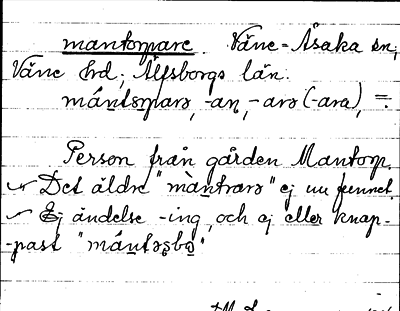 mantorpare. Väne-Åsaka sn,
Väne hd, Älfsborgs län.
mántɔrparə, -an, -arə (-ara), =.
Person från gården Mantorp.
Det äldre "màntrarə" ej nu funnet.
Ej ändelse -ing, och ej eller knap-
-past "mántəsbo"